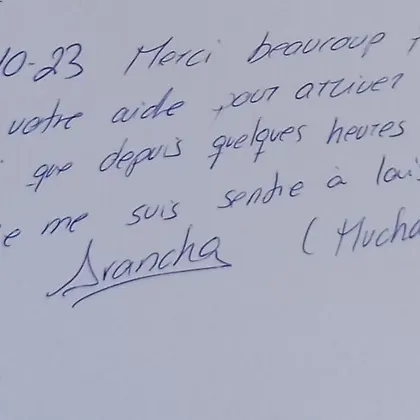 10-23 Merci beaucoup
votre aide pour arriver
que depuis quelques heures
me suis sentie à
Arancha (Mucha